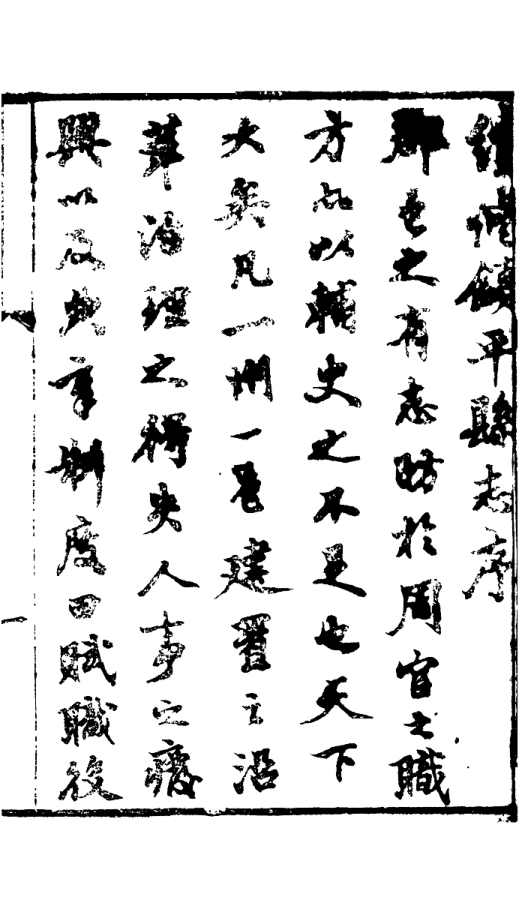 續修鎮平縣志序
郡邑之有志昉於周官之職
方所以輔史之不足也天下
大矣凡一州一邑建置之沿
革治理之得失人事之廢
興以及典章制度田賦職役
一